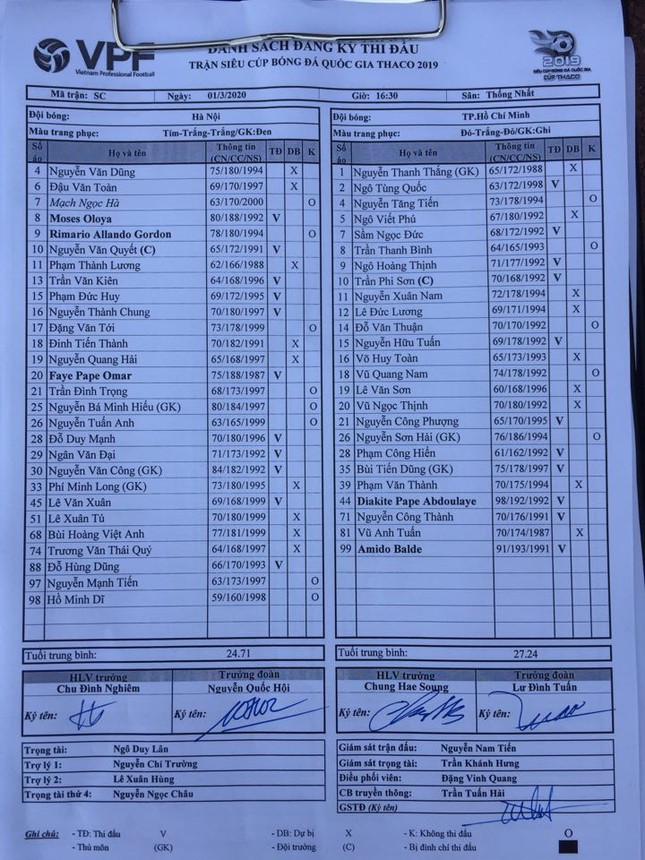 VPF
Vietnam Professional Football
DANH SÁCH ĐĂNG KÝ THI ĐẤU
TRẬN SIÊU CÚP BÓNG ĐÁ QUỐC GIA THACO 2019
2019
SIÊU CÚP BÓNG ĐÁ QUỐC GIA
CÚP THACO
Mã trận: SC Ngày: 01/3/2020 Giờ: 16:30 Sân: Thống Nhất
Đội bóng: Hà Nội
Màu trang phục: Tím-Trắng-Trắng/GK:Đen
Số áo Họ và tên Thông tin (CN/CC/NS) TĐ DB K
4 Nguyễn Văn Dũng 75/180/1994 X
6 Đậu Văn Toàn 69/170/1997 X
7 Mạch Ngọc Hà 63/170/2000 O
8 Moses Oloya 80/188/1992 V
9 Rimario Allando Gordon 78/180/1994 O
10 Nguyễn Văn Quyết (C) 65/172/1991 V
11 Phạm Thành Lương 62/166/1988 X
13 Trần Văn Kiên 64/168/1996 V
15 Phạm Đức Huy 69/172/1995 V
16 Nguyễn Thành Chung 70/180/1997 V
17 Đặng Văn Tới 73/178/1999 O
18 Đinh Tiến Thành 70/182/1991 X
19 Nguyễn Quang Hải 65/168/1997 X
20 Faye Pape Omar 75/188/1987 V
21 Trần Đình Trọng 68/173/1997 O
25 Nguyễn Bá Minh Hiếu (GK) 80/184/1997 O
26 Nguyễn Tuấn Anh 63/165/1999 O
28 Đỗ Duy Mạnh 70/180/1996 V
29 Ngân Văn Đại 71/173/1992 V
30 Nguyễn Văn Công (GK) 84/182/1992 V
33 Phí Minh Long (GK) 73/180/1995 X
45 Lê Văn Xuân 69/168/1999 V
51 Lê Xuân Tú 70/180/1999 X
68 Bùi Hoàng Việt Anh 77/181/1999 X
74 Trương Văn Thái Quý 64/168/1997 X
88 Đỗ Hùng Dũng 66/170/1993 V
97 Nguyễn Mạnh Tiến 63/173/1997 O
98 Hồ Minh Dĩ 59/160/1998 O
Tuổi trung bình: 24.71
HLV trưởng Trưởng đoàn
Chu Đình Nghiêm Nguyễn Quốc Hội
Ký tên: Ký tên:
Trọng tài: Ngô Duy Lân
Trợ lý 1: Nguyễn Chí Trường
Trợ lý 2: Lê Xuân Hùng
Trọng tài thứ 4: Nguyễn Ngọc Châu
Đội bóng: TP.Hồ Chí Minh
Màu trang phục: Đỏ-Trắng-Đỏ/GK:Ghi
Số áo Họ và tên Thông tin (CN/CC/NS) TĐ DB K
1 Nguyễn Thanh Thắng (GK) 65/172/1988 X
2 Ngô Tùng Quốc 63/172/1998 V
4 Nguyễn Tăng Tiến 73/178/1994 O
5 Ngô Viết Phú 67/180/1992 X
7 Sầm Ngọc Đức 68/172/1992 V
8 Trần Thanh Bình 64/165/1993 O
9 Ngô Hoàng Thịnh 71/177/1992 V
10 Trần Phi Sơn (C) 70/168/1992 V
11 Nguyễn Xuân Nam 72/178/1994 X
12 Lê Đức Lương 69/171/1994 X
14 Đỗ Văn Thuận 70/170/1992 O
15 Nguyễn Hữu Tuấn 69/178/1992 V
16 Võ Huy Toàn 65/173/1993 X
18 Vũ Quang Nam 74/178/1992 O
19 Lê Văn Sơn 60/168/1996 X
20 Vũ Ngọc Thịnh 70/180/1992 X
21 Nguyễn Công Phượng 65/170/1995 V
26 Nguyễn Sơn Hải (GK) 76/186/1994 O
28 Phạm Công Hiển 61/162/1992 V
35 Bùi Tiến Dũng (GK) 75/178/1997 V
39 Phạm Văn Thành 70/175/1994 X
44 Diakite Pape Abdoulaye 98/192/1992 V
71 Nguyễn Công Thành 70/176/1991 V
81 Vũ Anh Tuấn 70/174/1987 X
99 Amido Balde 91/193/1991 V
Tuổi trung bình: 27.24
HLV trưởng Trưởng đoàn
Chung Hae Soung Lư Đình Tuấn
Ký tên: Ký tên:
Giám sát trận đấu: Nguyễn Nam Tiến
Giám sát trọng tài: Trần Khánh Hưng
Điều phối viên: Đặng Vinh Quang
CB truyền thông: Trần Tuấn Hải
GSTĐ (Ký tên)
Ghi chú: - TĐ: Thi đấu V - DB: Dự bị X - K: Không thi đấu O
- Thủ môn (GK) - Đội trưởng (C) - Bị đình chỉ thi đấu